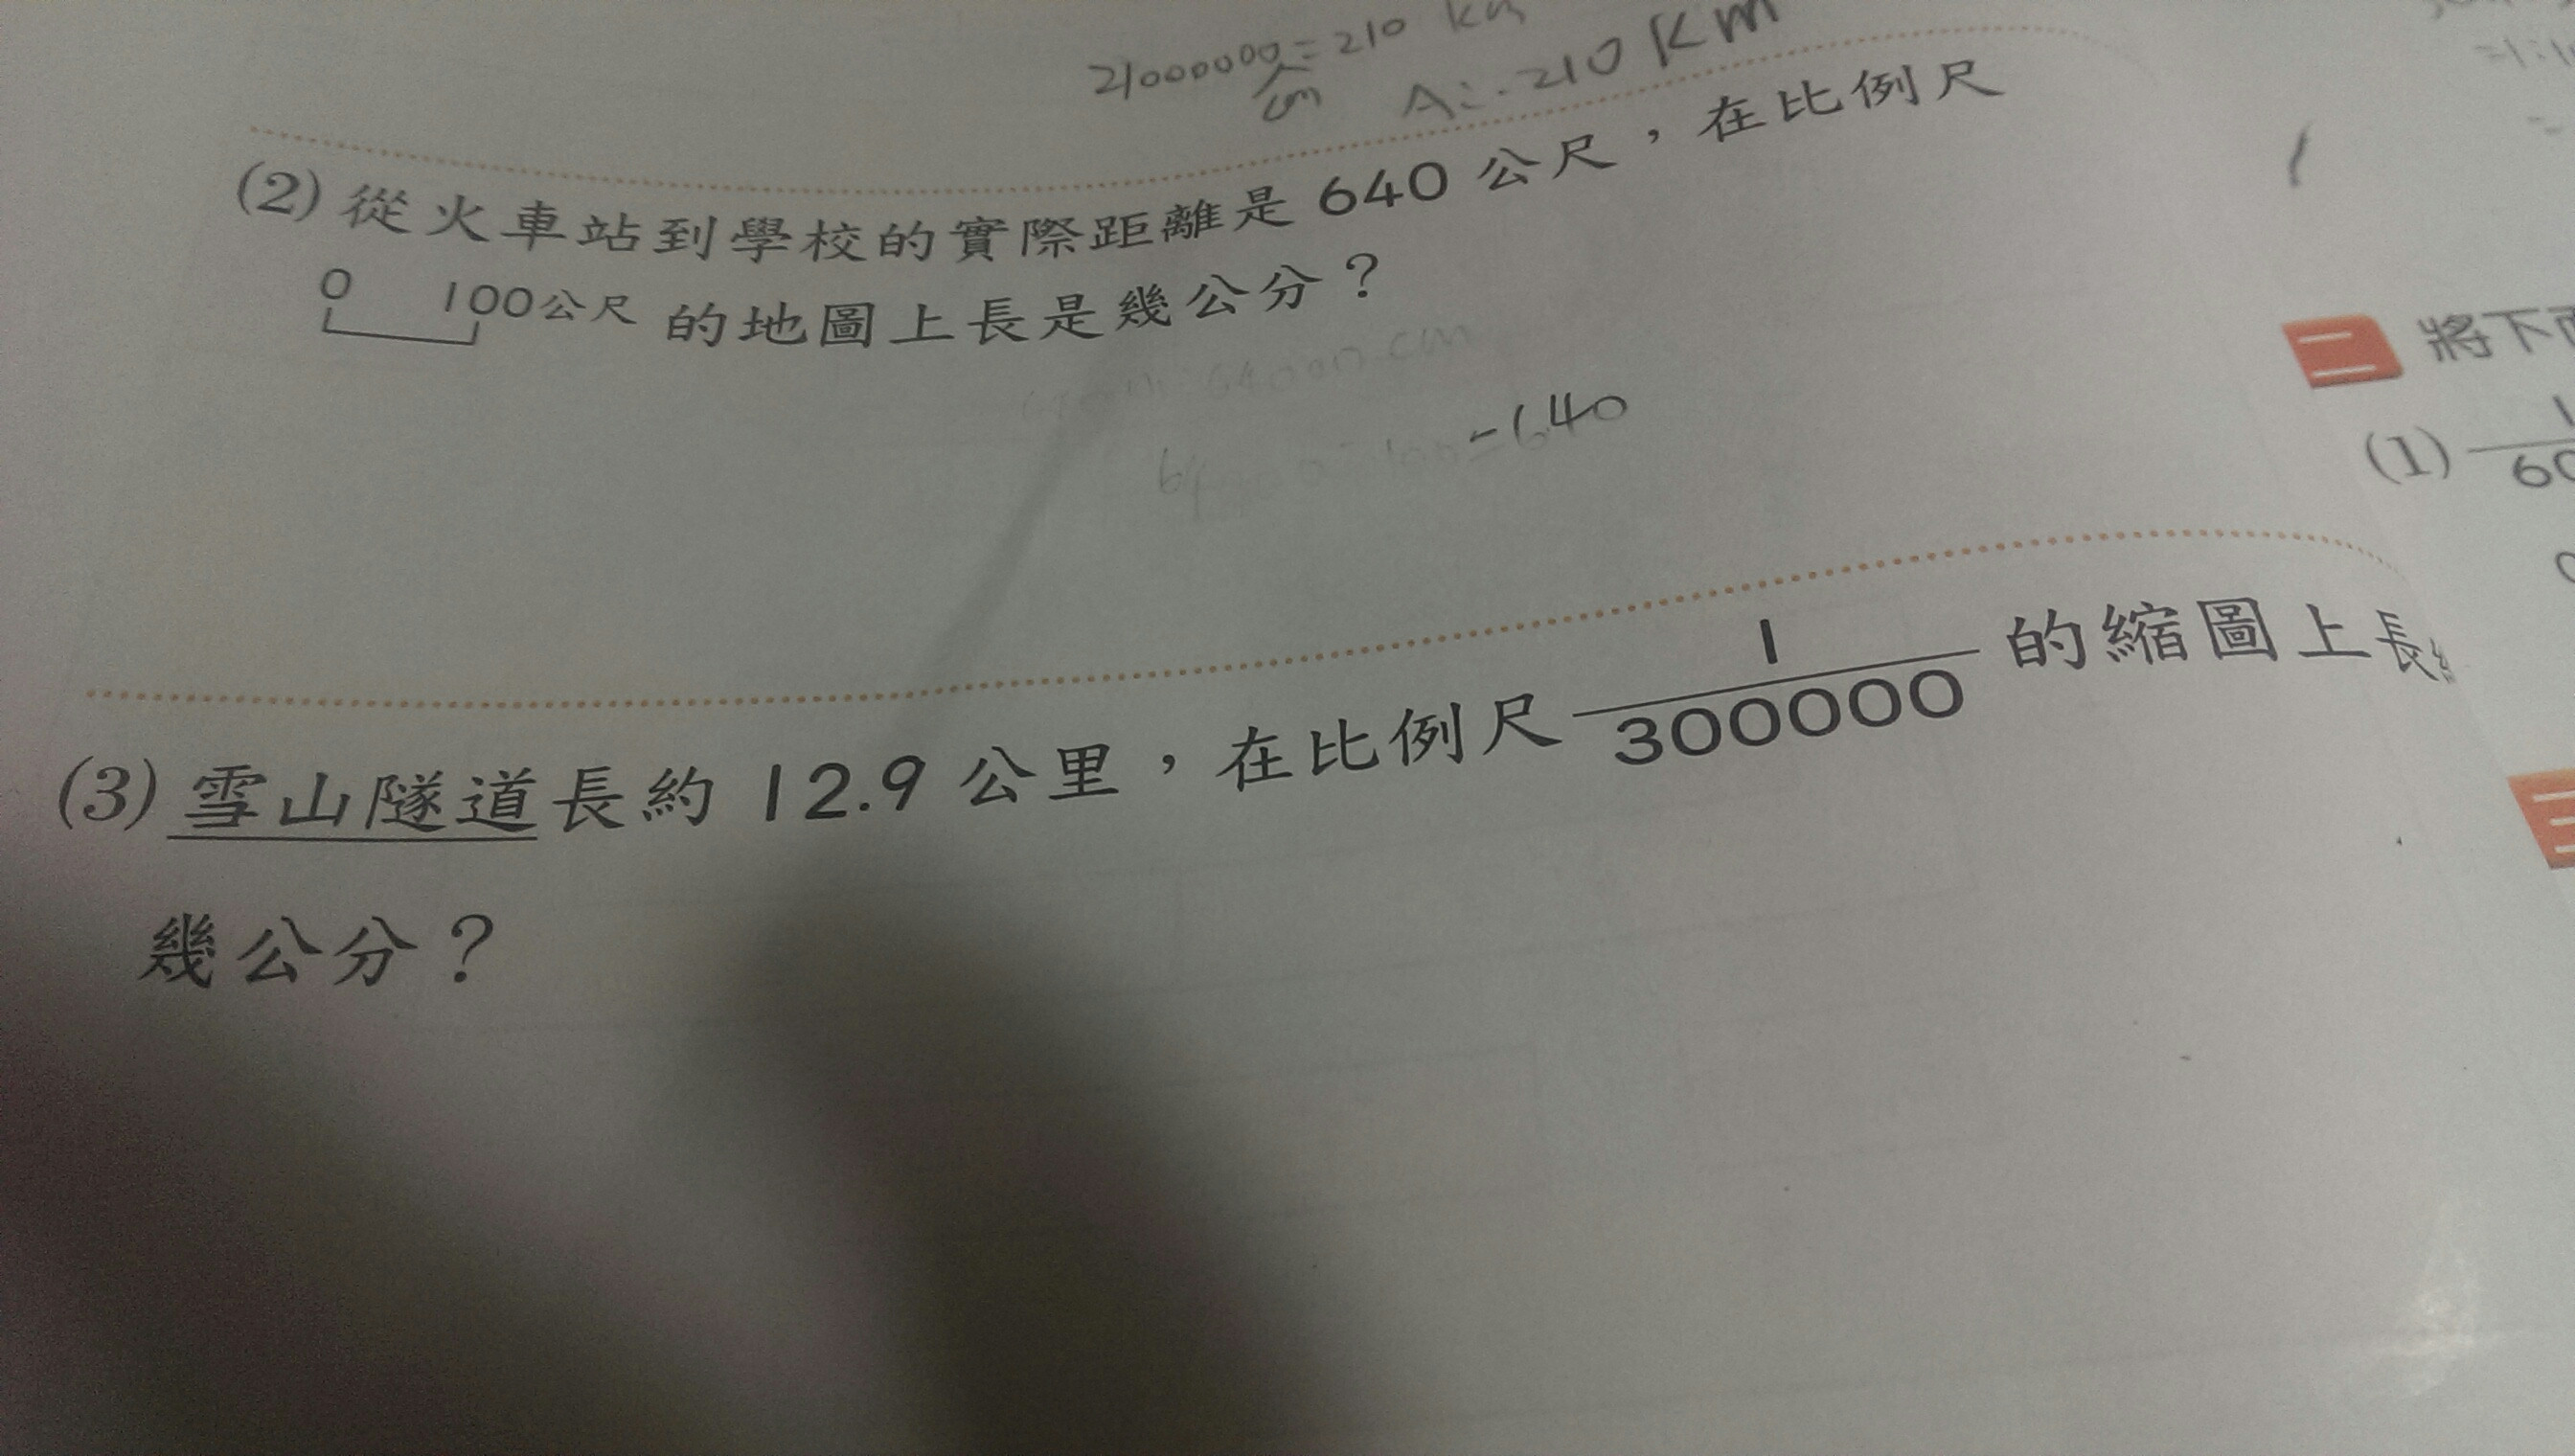 21000000=210 km
cm A:.210KM
(2)從火車站到學校的實際距離是640公尺，在比例尺
0 100公尺 的地圖上長是幾公分？
64000cm
=640
(3)雪山隧道長約12.9公里，在比例尺1/300000的縮圖上長
幾公分？
二 將下
(1) 1/60
三